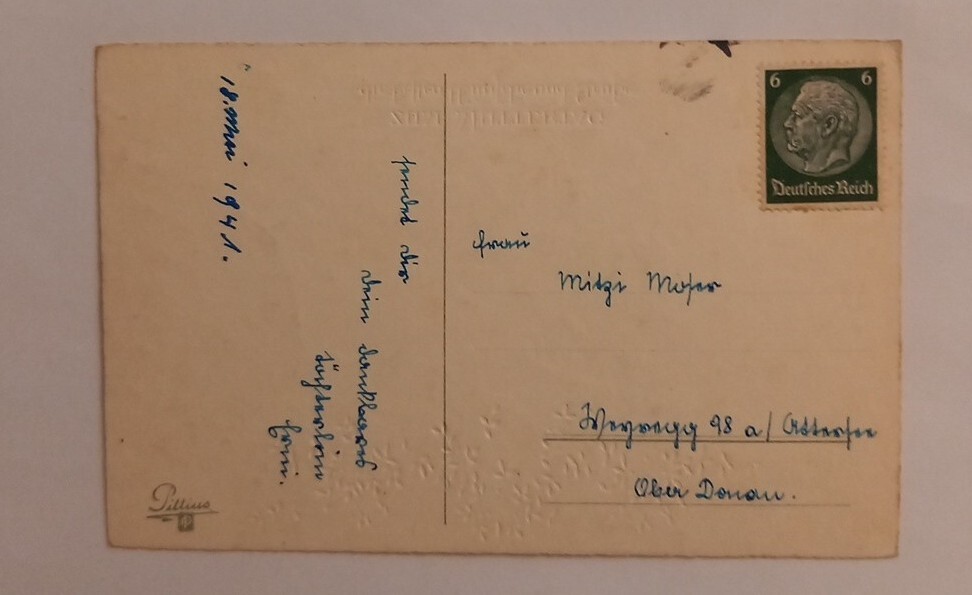 18. Mai 1941.
sendet dir
dein dankbares
Töchterlein
Pittius
6 6
Deutsches Reich
Frau
Mitzi Moser
Weyregg 98 a/ Attersee
Ober Donau.